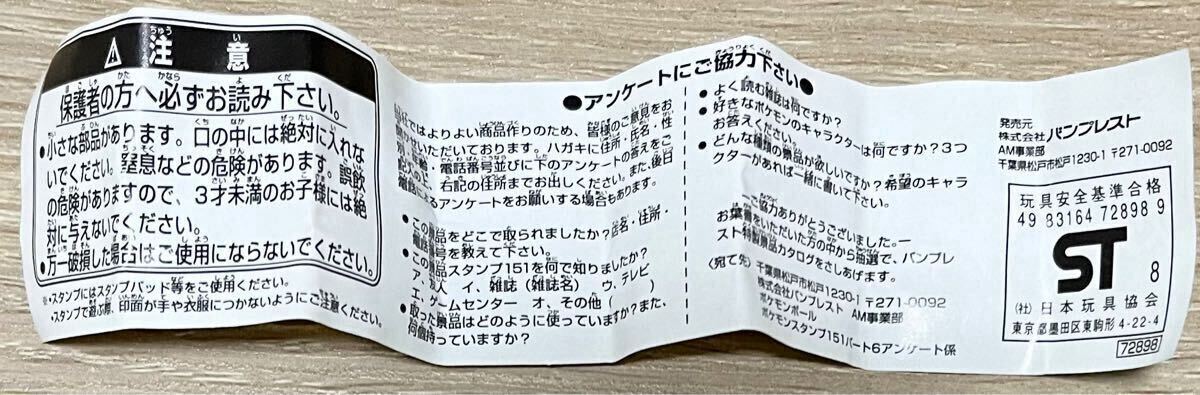 ⚠ 注意
保護者の方へ必ずお読み下さい。
●小さな部品があります。口の中には絶対に入れな
いでください。窒息などの危険があります。誤飲
の危険がありますので、3才未満のお子様には絶
対に与えないでください。
●万一破損した場合はご使用にならないでください。
※・スタンプにはスタンプパッド等をご使用ください。
・スタンプで遊ぶ際、印面が手や衣服につかないようにご注意ください。
●アンケートにご協力下さい●
ではよりよい商品作りのため、皆様のご意見をお
せいただいております。ハガキに住所・氏名・性
別・年齢・電話番号並びに下のアンケートの答えをご
記入の上、右記の住所までお出しください。また、後日
電話によるアンケートをお願いする場合もあります。
●この景品をどこで取られましたか?店名・住所・
電話番号を教えて下さい。
●この景品スタンプ151を何で知りましたか?
ア、友人 イ、雑誌(雑誌名) ウ、テレビ
エ、ゲームセンター オ、その他( )
●取った景品はどのように使っていますか?また、
何個持っていますか?
●よく読む雑誌は何ですか?
●好きなポケモンのキャラクターは何ですか?3つ
お答えください。
●どんな種類の景品が欲しいですか?希望のキャラ
クターがあれば一緒に書いて下さい。
ーご協力ありがとうございました。ー
お葉書をいただいた方の中から抽選で、バンプレ
スト特製景品カタログをさしあげます。
〈宛て先〉千葉県松戸市松戸1230-1 〒271-0092
株式会社バンプレスト AM事業部
ポケモンボール
ポケモンスタンプ151パート6アンケート係
発売元
株式会社バンプレスト
AM事業部
千葉県松戸市松戸1230-1 〒271-0092
玩具安全基準合格
49 83164 72898 9
ST 8
(社)日本玩具協会
東京都墨田区東駒形4-22-4
72898